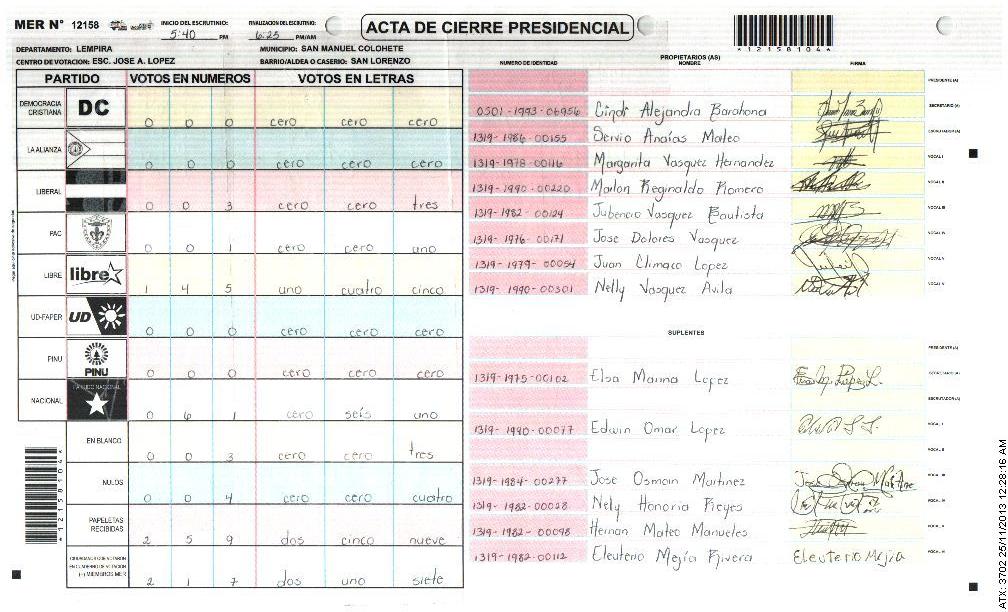 MER N° 12158 INICIO DEL ESCRUTINIO: 5:40 PM FINALIZACION DEL ESCRUTINIO: 6:25 PM/AM ACTA DE CIERRE PRESIDENCIAL *12158104*
DEPARTAMENTO: LEMPIRA MUNICIPIO: SAN MANUEL COLOHETE
CENTRO DE VOTACION: ESC. JOSE A. LOPEZ BARRIO/ALDEA O CASERIO: SAN LORENZO
PARTIDO VOTOS EN NUMEROS VOTOS EN LETRAS
DEMOCRACIA CRISTIANA DC 0 0 0 cero cero cero
LA ALIANZA 0 0 0 cero cero cero
LIBERAL 0 0 3 cero cero tres
PAC 0 0 1 cero cero uno
LIBRE libre 1 4 5 uno cuatro cinco
UD-FAPER UD 0 0 0 cero cero cero
PINU PINU 0 0 0 cero cero cero
NACIONAL PARTIDO NACIONAL 0 6 1 cero seis uno
EN BLANCO 0 0 3 cero cero tres
NULOS 0 0 4 cero cero cuatro
PAPELETAS RECIBIDAS 2 5 9 dos cinco nueve
CIUDADANOS QUE VOTARON EN CUADERNO DE VOTACION (+) MIEMBROS MER 2 1 7 dos uno siete
*12158104*
PROPIETARIOS (AS)
NUMERO DE IDENTIDAD NOMBRE FIRMA
PRESIDENTE (A)
0501-1993-06956 Cindi Alejandra Barahona SECRETARIO (A)
1319-1986-00155 Servio Anaías Mateo ESCRUTADOR (A)
1319-1978-00116 Margarita Vasquez Hernandez VOCAL I
1319-1990-00220 Marlon Reginaldo Romero VOCAL II
1319-1982-00124 Jubencio Vasquez Bautista VOCAL III
1319-1976-00171 Jose Dolores Vasquez VOCAL IV
1319-1979-00054 Juan Climaco Lopez VOCAL V
1319-1990-00301 Nelly Vasquez Avila VOCAL V
SUPLENTES
PRESIDENTE (A)
1319-1975-00102 Elsa Marina Lopez SECRETARIO (A)
ESCRUTADOR (A)
1319-1990-00077 Edwin Omar Lopez VOCAL I
VOCAL II
1319-1984-00277 Jose Osmain Martinez VOCAL III
1319-1982-00028 Nely Honoria Reyes VOCAL IV
1319-1982-00098 Hernan Mateo Manueles VOCAL V
1319-1982-00112 Eleuterio Mejía Rivera Eleuterio Mejia VOCAL VI
ATX: 3702 25/11/2013 12:28:16 AM